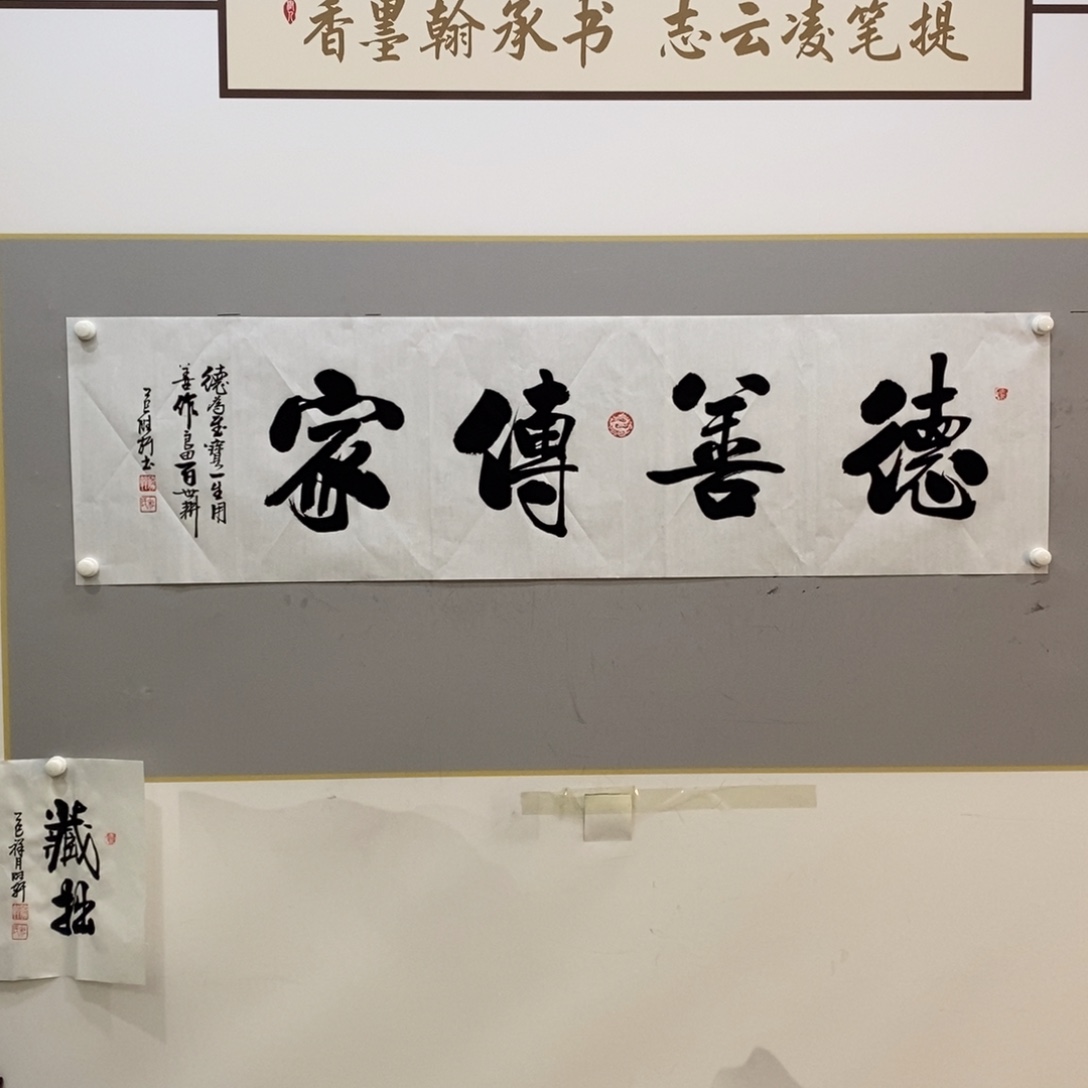 提笔凌云志 书承翰墨香
德善傳家
德為至寶一生用
善作良田百世耕
藏拙